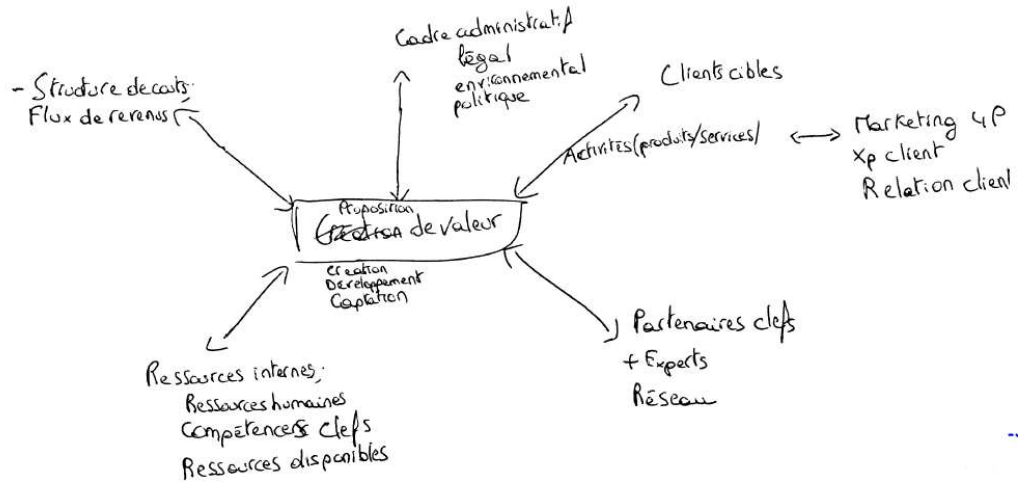 - Structure de couts.
Flux de revenus
Cadre administratif
légal
environnemental
politique
Clients cibles
Activités (produits/services)
Marketing 4P
Xp client
Relation client
Proposition
Création de valeur
Création
Développement
Captation
Ressources internes:
Ressources humaines
Compétences clefs
Ressources disponibles
Partenaires clefs
+ Experts
Réseau